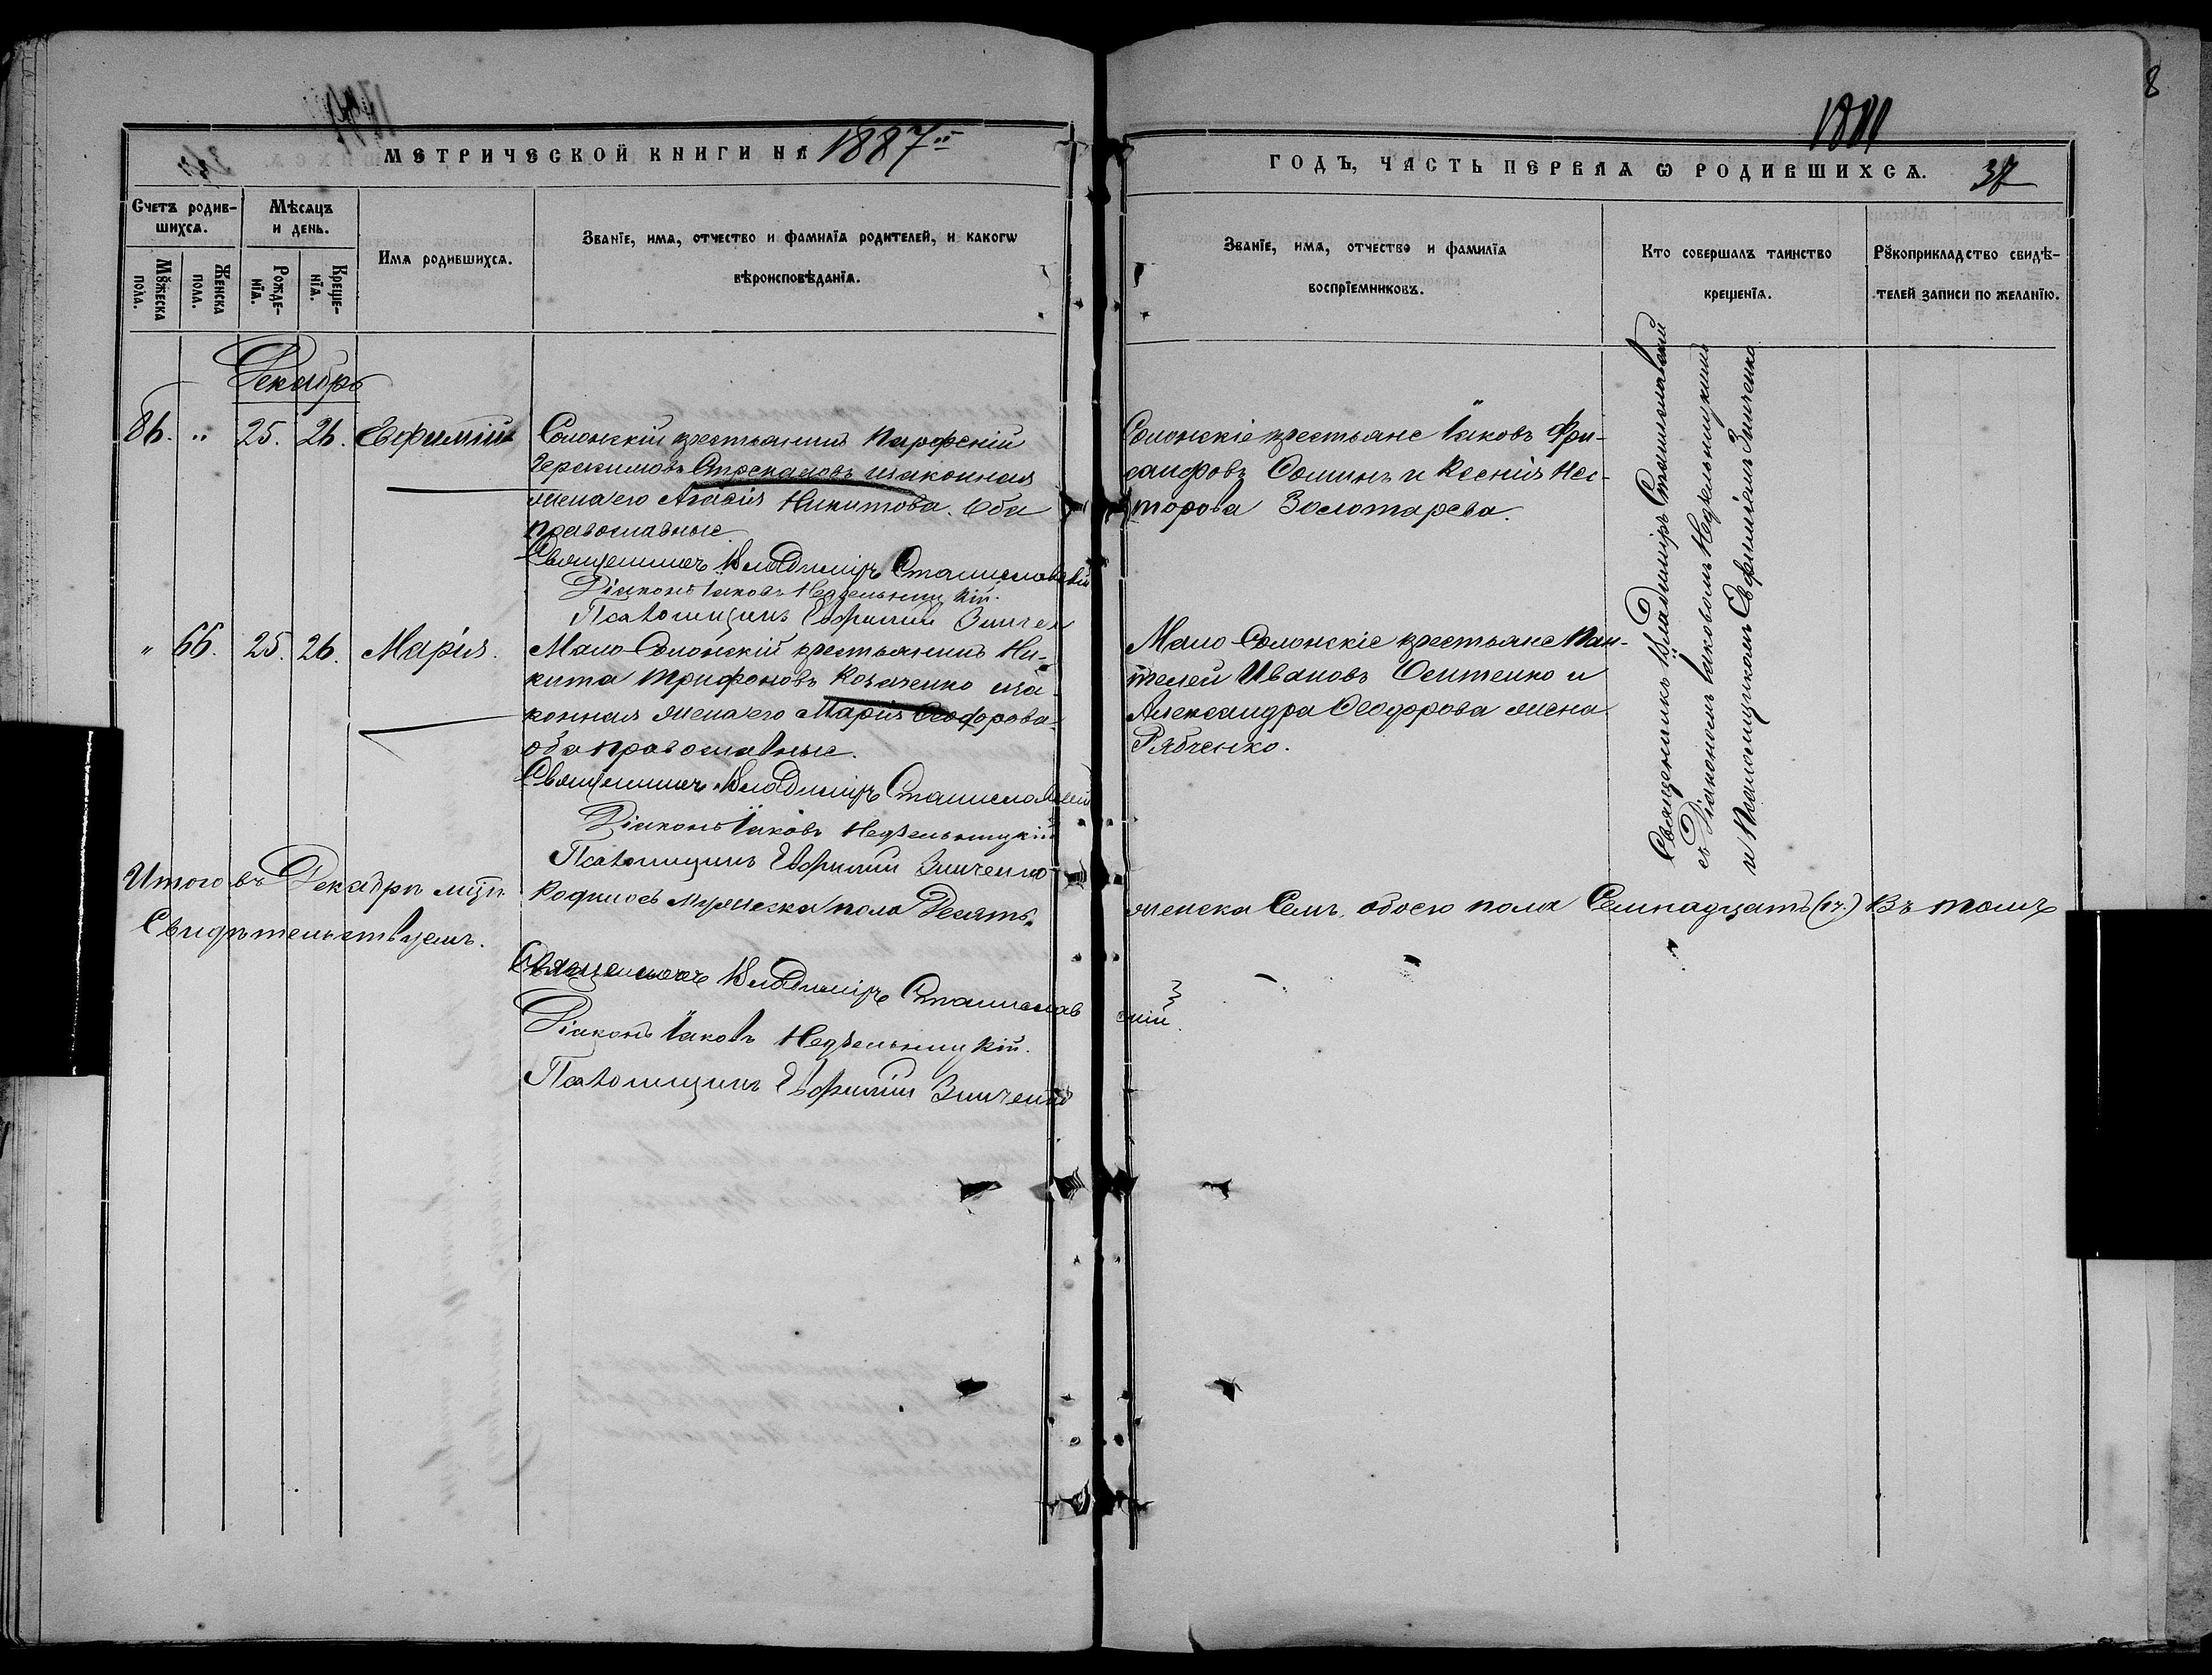 МЕТРИЧЕСКОЙ КНИГИ НА 1887й
ГОДЪ, ЧАСТЬ ПЕРВАѦ Ѡ РОДИВШИХСѦ. 37
8
Счетъ родив-
шихсѧ.
Мѣсѧцъ
и день.
Имѧ родившихсѧ.
Званїе, имѧ, отчество и фамилїѧ родителей, и какогѡ
вѣроисповѣданїѧ.
Мꙋжеска
пола.
Женска
пола.
Рожде-
нїѧ.
Креще-
нїѧ.
Званїе, имѧ, отчество и фамилїѧ
воспрїемниковъ.
Кто совершалъ таинство
крещенїѧ.
Рꙋкоприкладство свидѣ-
телей записи по желанїю.
Декабрь
86. „ 25. 26. Евфимій
Солонскій крестьянинъ Парфеній
Герасимовъ и законная
жена его Агафія Никитова. Оба
православные.
Священникъ Владиміръ Станиславскій
Діаконъ Іаковъ Недѣльницкій.
Псаломщикъ Евфимій Зинчен
Солонскіе крестьяне Іаковъ Фри-
сanфовъ Сомикъ и Ксенія Нес-
торова Золотарева.
Священникъ Владиміръ Станиславскій
съ Діакономъ Іаковомъ Недѣльницкимъ
и Псаломщикомъ Евфиміемъ Зинченко
„ 66. 25. 26. Марія.
Мало-Солонскій крестьянинъ Ни-
кита Трифоновъ Козаченко и за-
конная жена его Марія Ѳеодорова
оба православные.
Священникъ Владиміръ Станиславскій
Діаконъ Іаковъ Недѣльницкій
Псаломщикъ Евфимій Зинченко
Мало-Солонскіе крестьяне Пан-
телей Ивановъ Осипенко и
Александра Ѳеодорова жена
Рябченко.
Итого въ Декабрѣ мцѣ родилось мужеска пола Десять, женска Семь, обоего пола Семнадцать (17.) Въ томъ
Свидѣтельствуемъ.
Священникъ Владиміръ Станиславскій.
Діаконъ Іаковъ Недѣльницкій.
Псаломщикъ Евфимій Зинченко